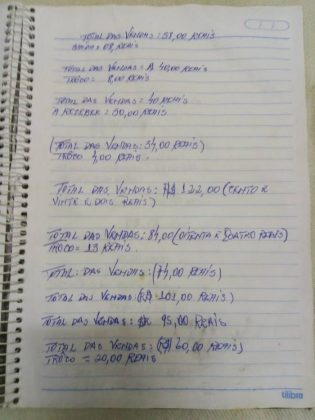 TOTAL DAS VENDAS: 58,00 REAIS
08, REAIS
TOTAL DAS VENDAS: 40,00 REAIS
TROCO = 8,00 REAIS
TOTAL DAS VENDAS = 40 REAIS
A RECEBER = 50,00 REAIS
(TOTAL DAS VENDAS: 34,00 REAIS)
TROCO 4,00 REAIS.
TOTAL DAS VENDAS: R$ 122,00 (CENTO E
VINTE E DOIS REAIS)
TOTAL DAS VENDAS: 84,00 (OITENTA E QUATRO REAIS)
TROCO = 13 REAIS.
TOTAL: DAS VENDAS: (74,00 REAIS)
TOTAL DAS VENDAS: (R$ 101,00 REAIS)
TOTAL DAS VENDAS: 95,00 REAIS
TOTAL DAS VENDAS: (R$ 60,00 REAIS)
TROCO = 20,00 REAIS
tilibra